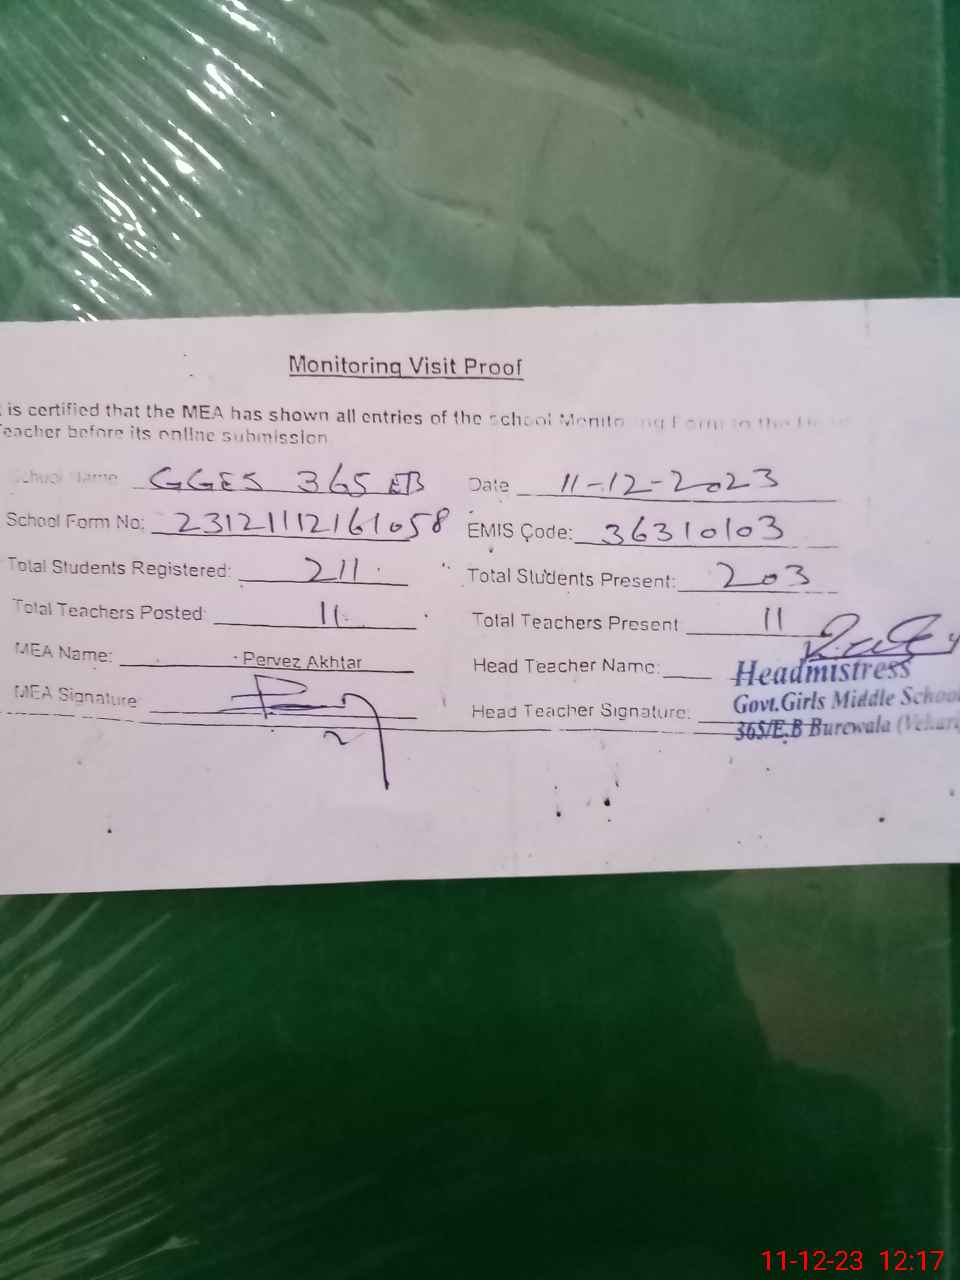 Monitoring Visit Proof
is certified that the MEA has shown all entries of the school Monitoring Form to the
Teacher before its online submission
School Name GGES 365 EB Date 11-12-2023
School Form No: 23121112161058 EMIS Code: 36310103
Total Students Registered: 211 Total Students Present: 203
Total Teachers Posted: 11 Total Teachers Present 11
MEA Name: Pervez Akhtar Head Teacher Name:
Headmistress
MEA Signature: Head Teacher Signature:
Govt.Girls Middle School
365/E.B Burewala
11-12-23 12:17